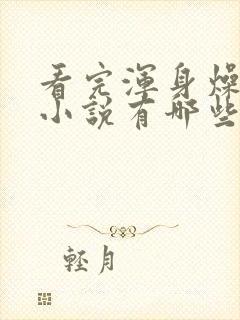 看完渾身燥
小說有哪些
輕月